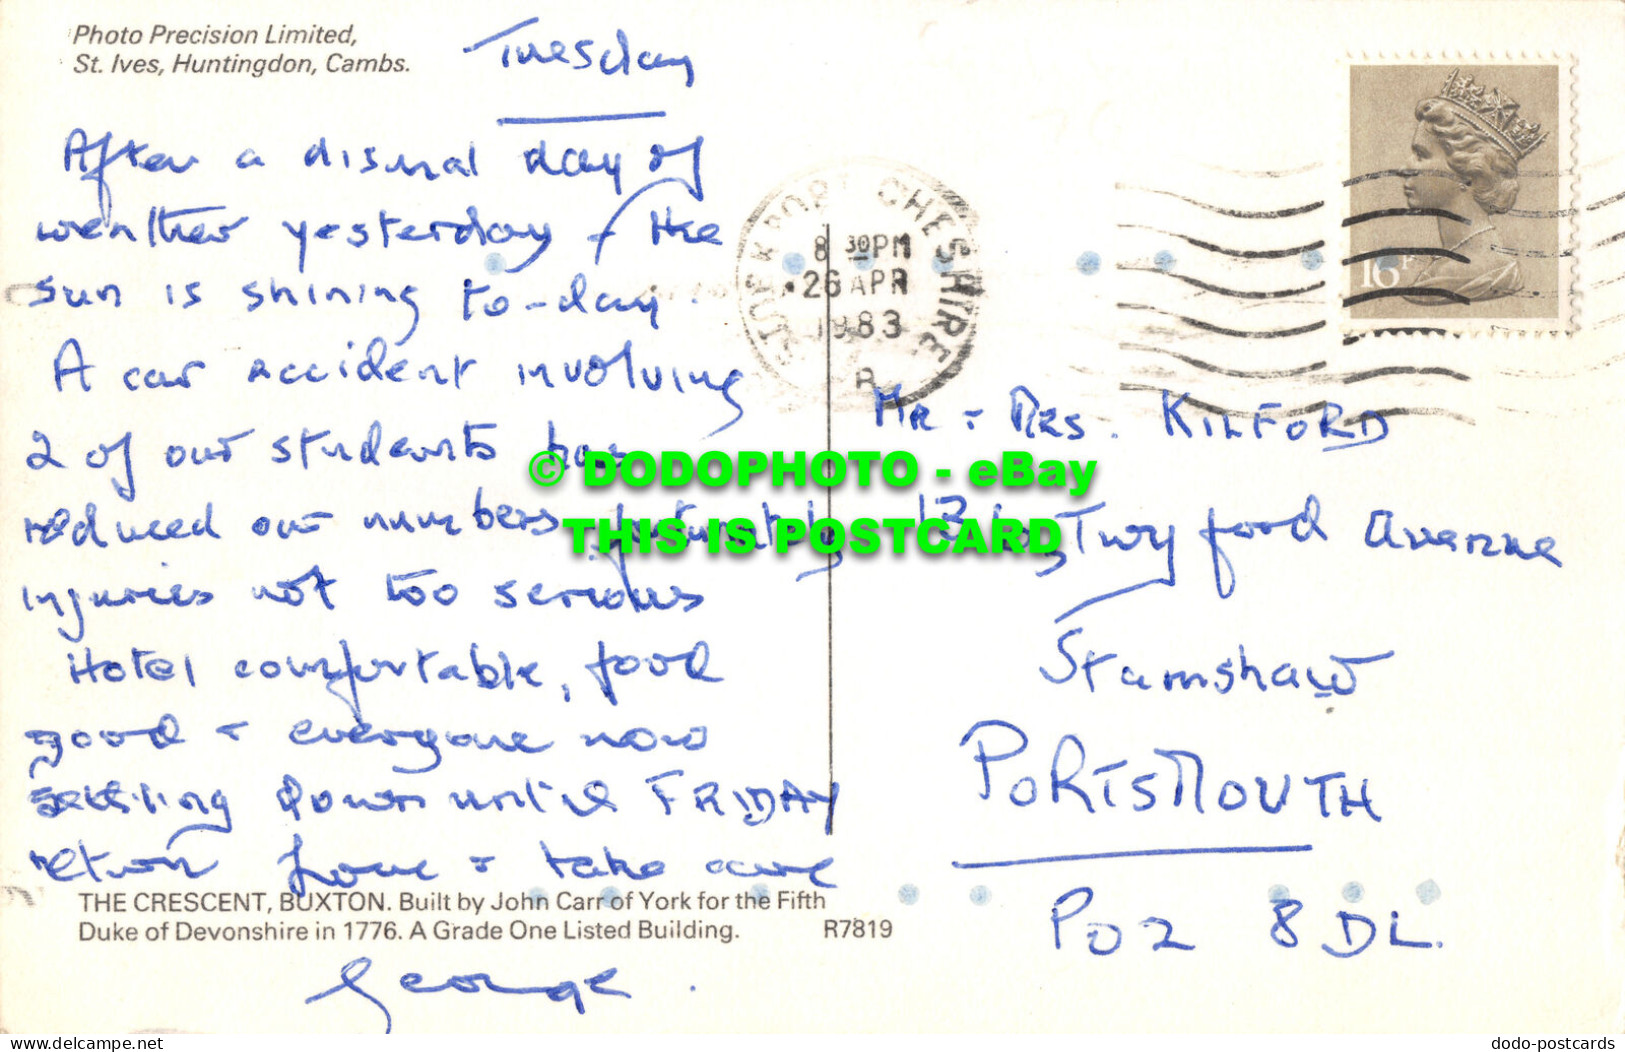 Photo Precision Limited,
St. Ives, Huntingdon, Cambs.
Tuesday
After a dismal day of
weather yesterday - the
sun is shining to-day.
A car accident involving
2 of our students have
reduced our numbers, fortunately
injuries not too serious
Hotel comfortable, food
good & everyone now
settling down until FRIDAY
return Love & take care
THE CRESCENT, BUXTON. Built by John Carr of York for the Fifth
Duke of Devonshire in 1776. A Grade One Listed Building. R7819
George.
STOCKPORT CHESHIRE
8 30PM
26 APR
1983
A
16P
MR & MRS. KILFORD
Twyford Avenue
Stamshaw
PORTSMOUTH
PO2 8DL.
© DODOPHOTO - eBay
THIS IS POSTCARD
www.delcampe.net
dodo-postcards